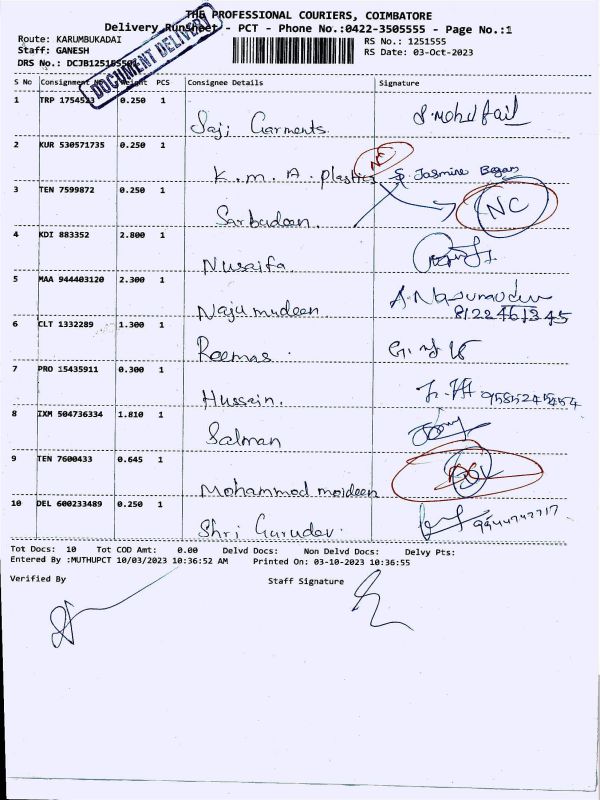 THE PROFESSIONAL COURIERS, COIMBATORE
Delivery Runsheet - PCT - Phone No.:0422-3505555 - Page No.:1
Route: KARUMBUKADAI RS No.: 1251555
Staff: GANESH RS Date: 03-Oct-2023
DRS No.: DCJB1251555
DOCUMENT DELIVERY
S No Consignment Weight PCS Consignee Details Signature
1 TRP 1754523 0.250 1
Saji Garments.
2 KUR 530571735 0.250 1
K.M.A. plastics NC Jasmine Began
3 TEN 7599872 0.250 1
Sarbudeen. NC
4 KDI 883352 2.800 1
Nusaifa.
5 MAA 944403120 2.300 1
Najumudeen. 8122461345
6 CLT 1332289 1.300 1
Reemas.
7 PRO 15435911 0.300 1
Hussain. 9585245454
8 IXM 504736334 1.810 1
Salman
9 TEN 7600433 0.645 1
Mohammed moideen
10 DEL 600233489 0.250 1
Shri Gurudev. 9944742717
Tot Docs: 10 Tot COD Amt: 0.00 Delvd Docs: Non Delvd Docs: Delvy Pts:
Entered By :MUTHUPCT 10/03/2023 10:36:52 AM Printed On: 03-10-2023 10:36:55
Verified By Staff Signature